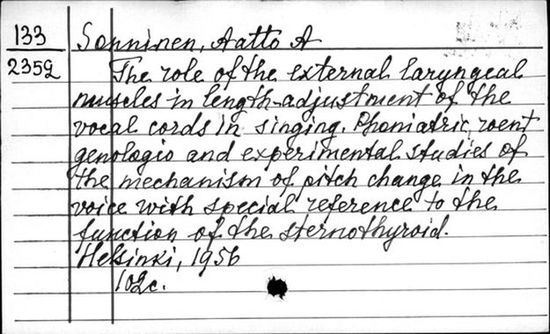 133 Sonninen, Aatto A
2359 The role of the external laryngeal
muscles in length-adjustment of the
vocal cords in singing. Phoniatric, roent
genologic and experimental studies of
the mechanism of pitch change in the
voice with special reference to the
function of the sternothyroid.
Helsinki, 1956
102c.